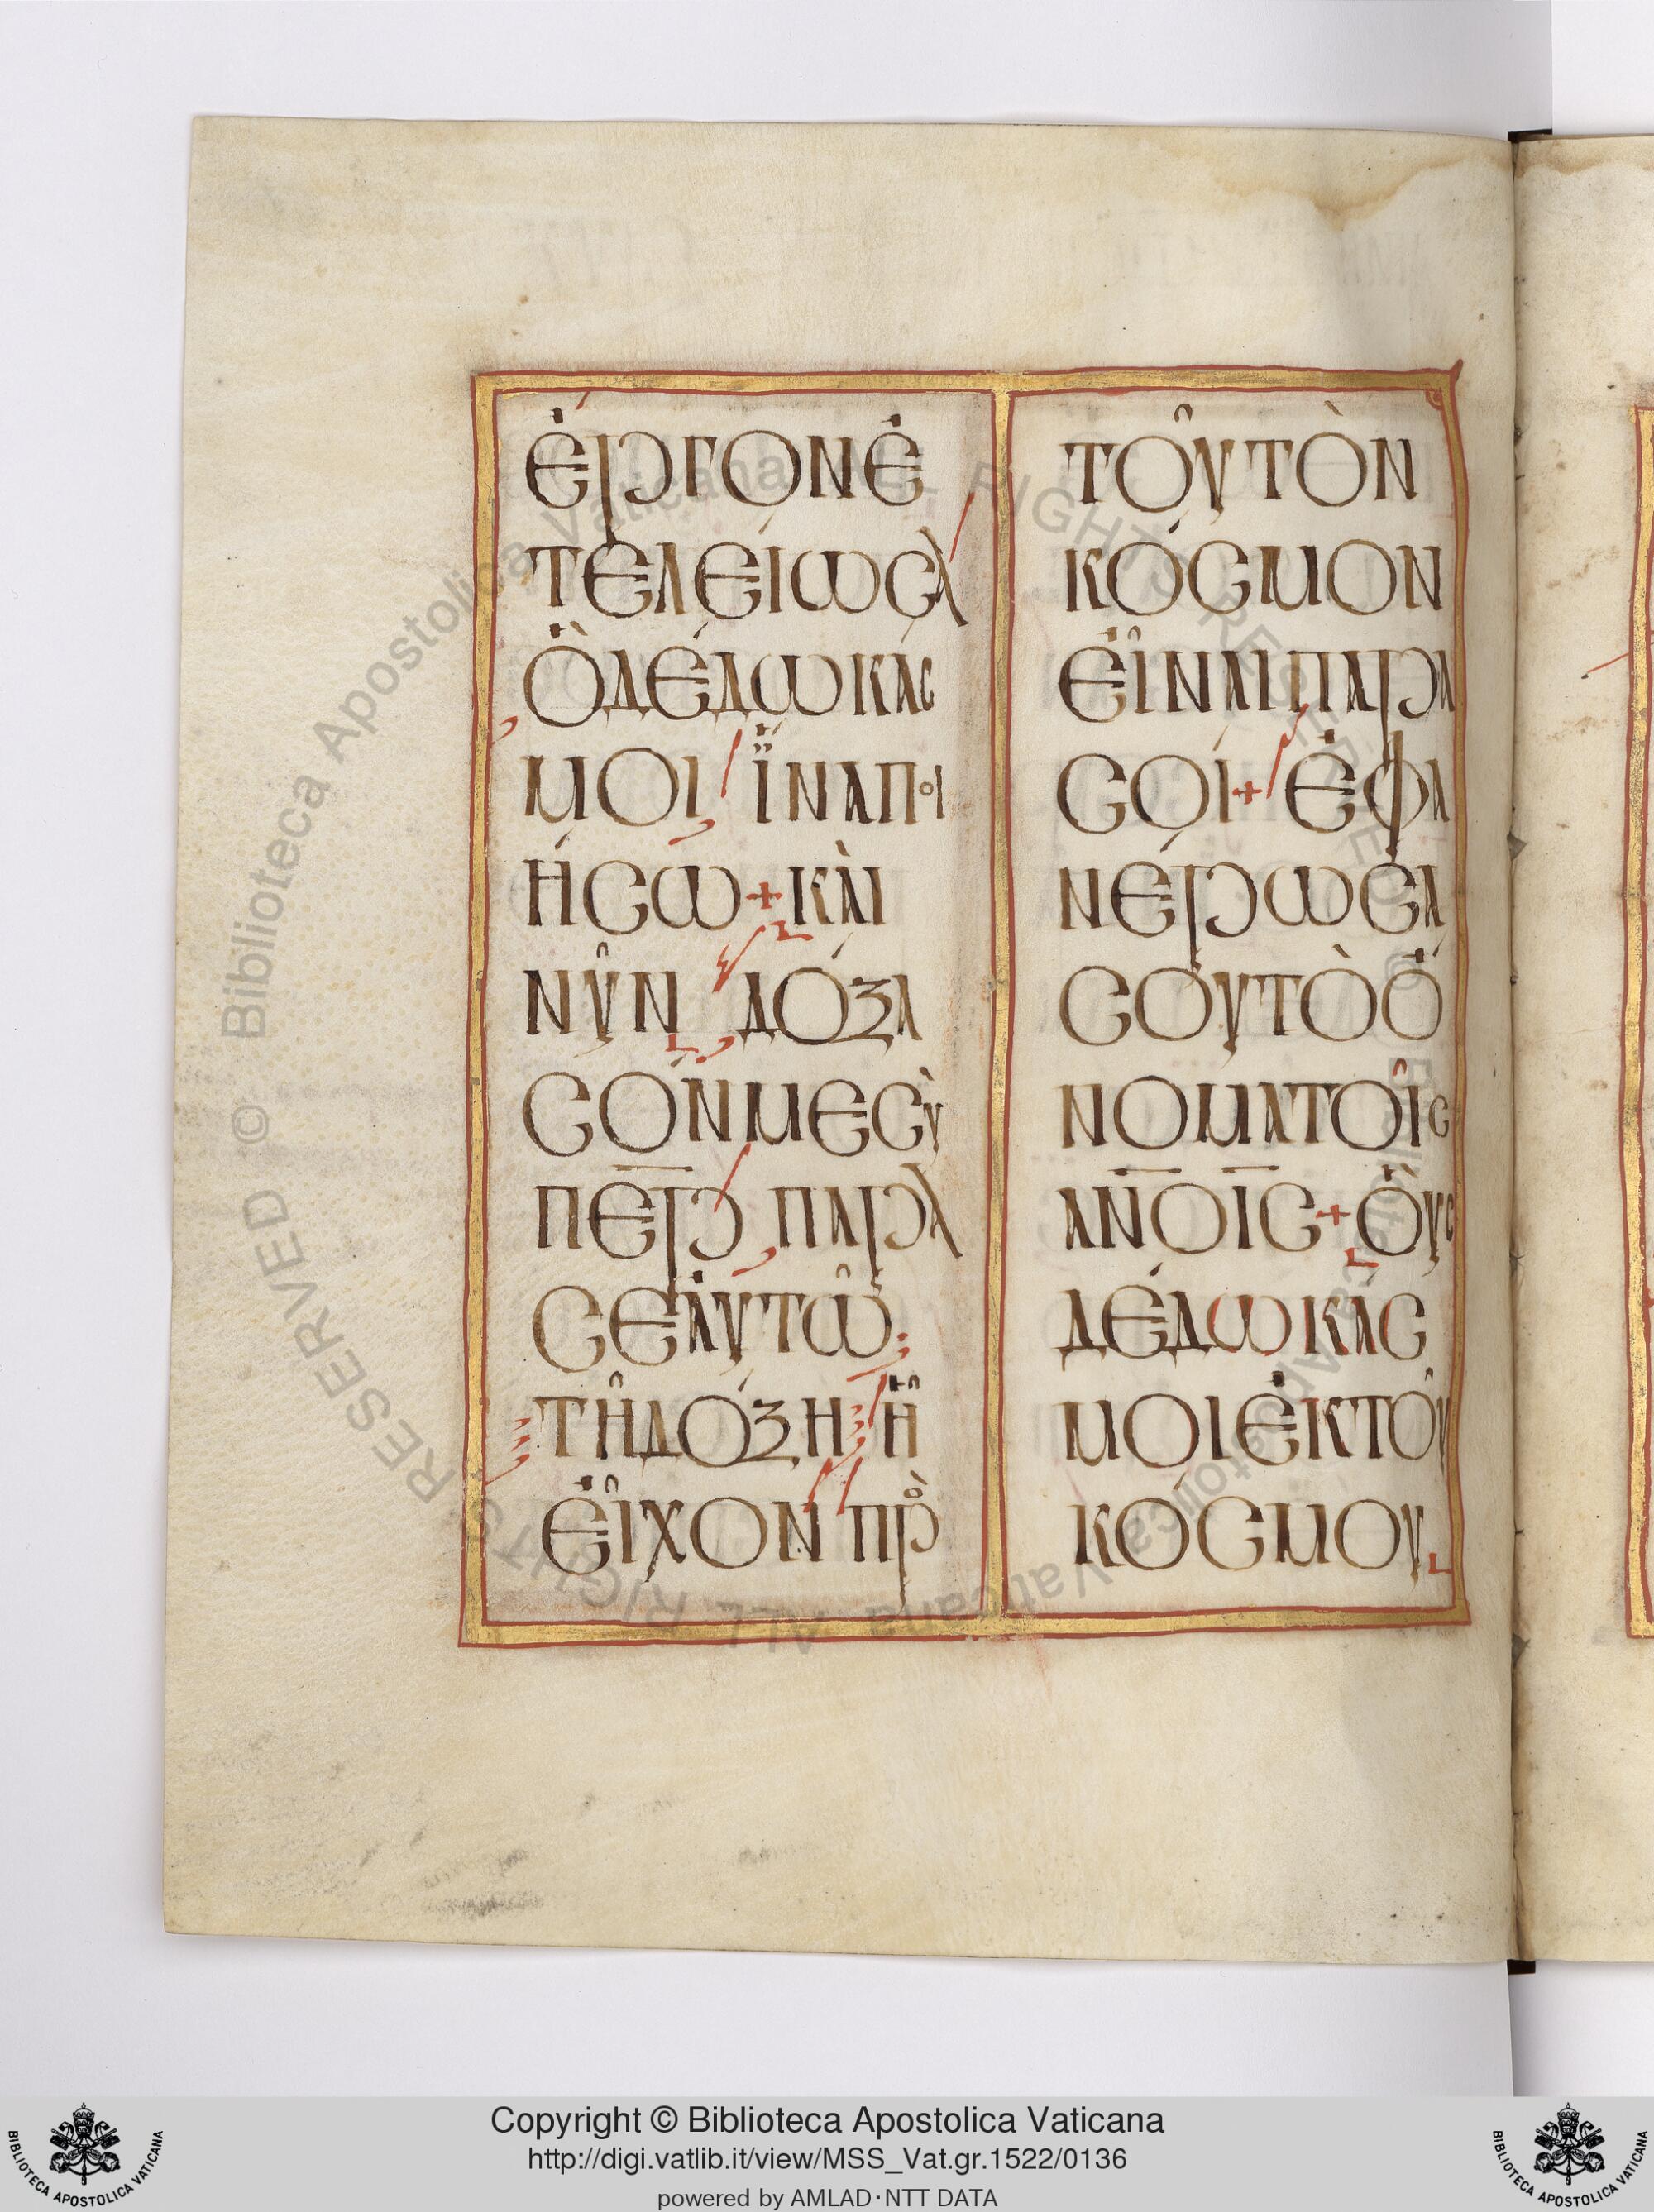 ἐργονἐ
τελείωσα
ὃδέδωκάς
μοι ἵναποι
ήσω + κὰι
νῦν δόξα
σόνμεσὺ
πε̅ρ̅ παρὰ
σεἀυτῶ
τῆδόξη ἧ
ἐῖχονπρὸ
τοῦτὸν
κόσμον
ἐῖναιπαρα
σοί + ἐφα
νέρωσά
σουτὸὄ
νοματοῖς
α̅ν̅ο̅ι̅ς + ὅυς
δέδωκάς
μοιἐκτοῦ
κόσμου
© Biblioteca Apostolica Vaticana ALL RIGHTS RESERVED
© Biblioteca Apostolica Vaticana ALL RIGHTS RESERVED
Copyright © Biblioteca Apostolica Vaticana
http://digi.vatlib.it/view/MSS_Vat.gr.1522/0136
powered by AMLAD·NTT DATA
BIBLIOTECA APOSTOLICA VATICANA
BIBLIOTECA APOSTOLICA VATICANA